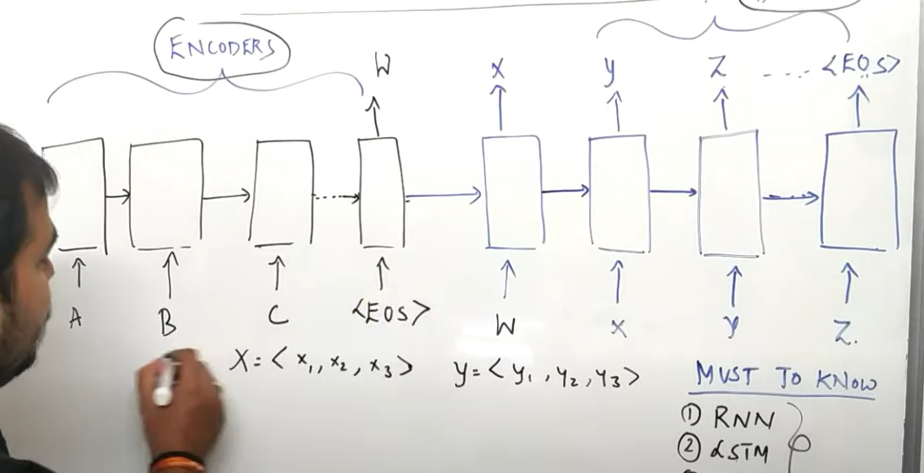 ENCODERS
W X Y Z .... <EOS>
A B C <EOS> W X Y Z.
X = < x1, x2, x3 > Y = < Y1, Y2, Y3 >
MUST TO KNOW
① RNN
② LSTM